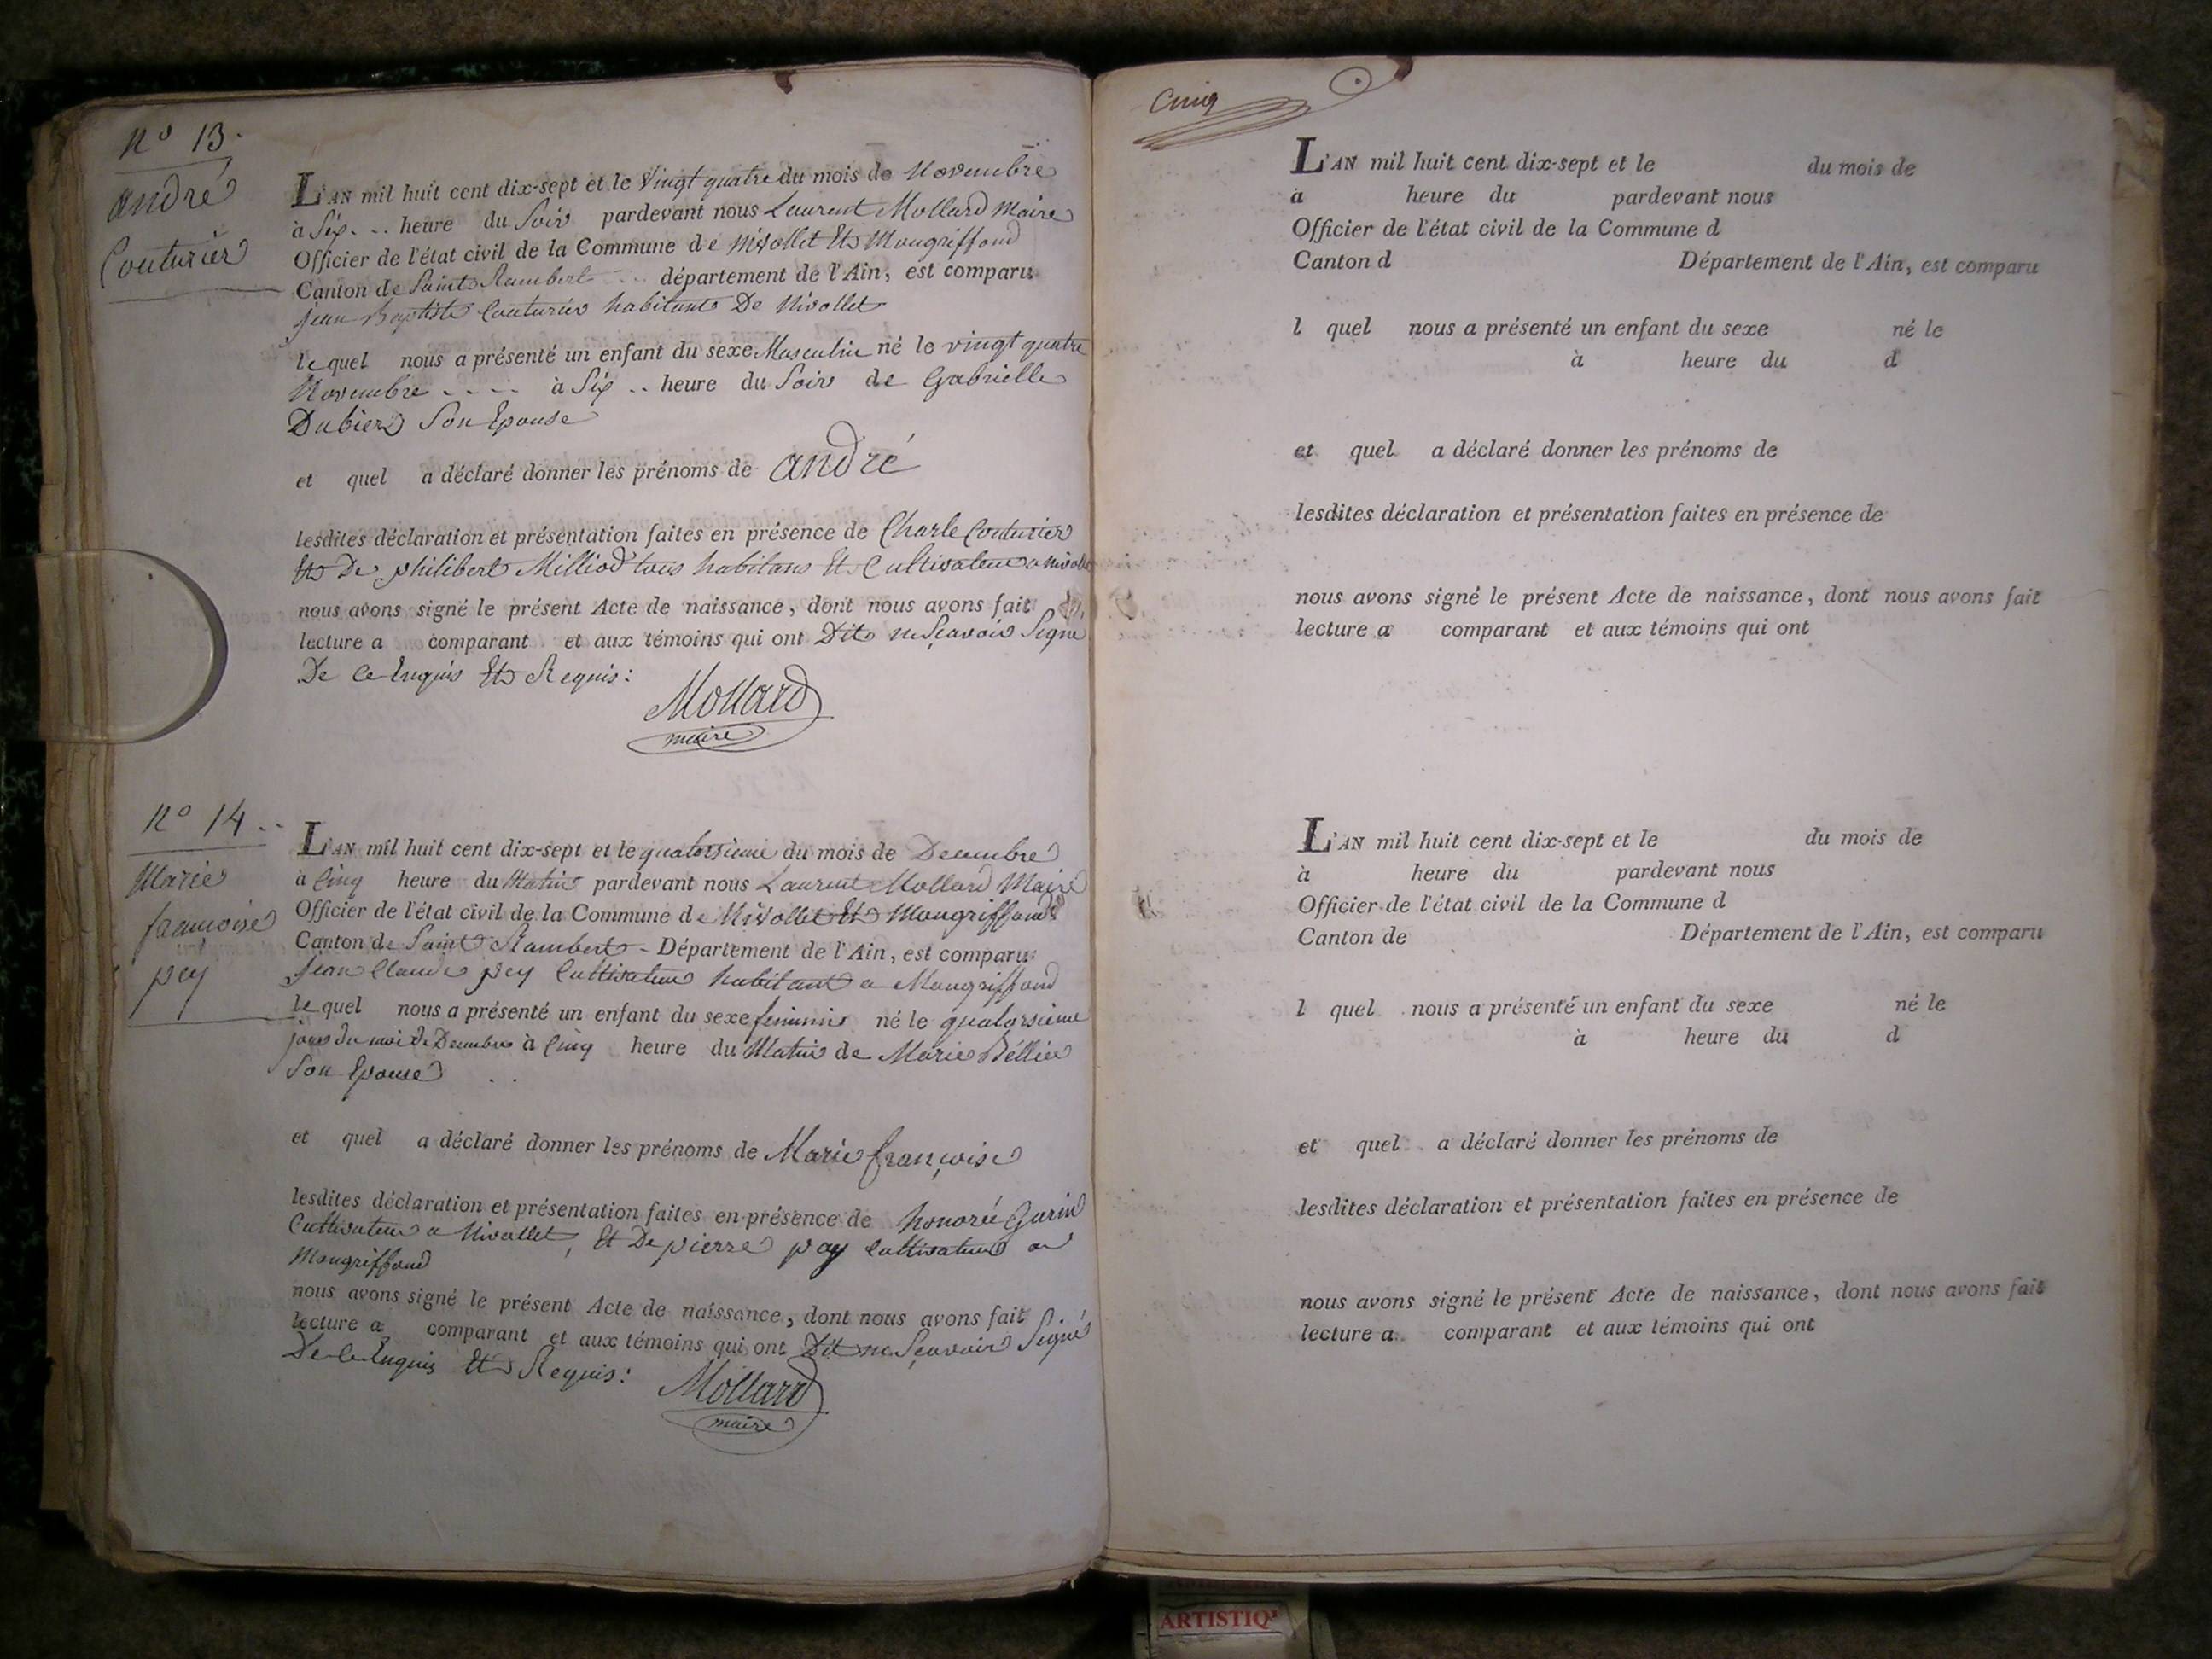 N° 13.
andré
Couturier
L'AN mil huit cent dix-sept et le Vingt quatre du mois de Novembre
à Six . .. heure du Soir pardevant nous Laurent Mollard Maire
Officier de l'état civil de la Commune de Nivollet Et Mongriffond
Canton de Saint Rambert ... département de l'Ain, est comparu
jean Baptiste Couturier habitant De Nivollet
le quel nous a présenté un enfant du sexe Masculin né le vingt quatre
Novembre .... à Six .. heure du Soir de Gabrielle
Dubier Son Epouse
et quel a déclaré donner les prénoms de andré
lesdites déclaration et présentation faites en présence de Charle Couturier
Et De philibert Milliod tous habitans Et Cultivateur a
nous avons signé le présent Acte de naissance, dont nous avons fait
lecture a comparant et aux témoins qui ont Dit ne Sçavoir Signé
De Ce Enquis Et Requis:
Mollard
maire
N° 14 ..
Marie
francoise
pey
L'AN mil huit cent dix-sept et le quatorsieme du mois de Decembre
à Cinq heure du Matin pardevant nous Laurent Mollard Maire
Officier de l'état civil de la Commune de Nivollet Et Mongriffond
Canton de Saint Rambert - Département de l'Ain, est comparu
Jean Claude pey Cultivateur habitant a Mongriffond
le quel nous a présenté un enfant du sexe feminin né le quatorsieme
jour du moi de Decembre à Cinq heure du Matin de Marie Béllier
Son Epouse ..
et quel a déclaré donner les prénoms de Marie françoise
lesdites déclaration et présentation faites en présence de honoré Garin
Cultivateur a Nivollet, Et De pierre pey Cultivateur a
Mongriffond
nous avons signé le présent Acte de naissance, dont nous avons fait
lecture a comparant et aux témoins qui ont Dit ne Sçavoir Signé
De Ce Enquis Et Requis:
Mollard
maire
Cinq
L'AN mil huit cent dix-sept et le du mois de
à heure du pardevant nous
Officier de l'état civil de la Commune d
Canton d Département de l'Ain, est comparu
l quel nous a présenté un enfant du sexe né le
à heure du d
et quel a déclaré donner les prénoms de
lesdites déclaration et présentation faites en présence de
nous avons signé le présent Acte de naissance, dont nous avons fait
lecture a comparant et aux témoins qui ont
L'AN mil huit cent dix-sept et le du mois de
à heure du pardevant nous
Officier de l'état civil de la Commune d
Canton de Département de l'Ain, est comparu
l quel nous a présenté un enfant du sexe né le
à heure du d
et quel a déclaré donner les prénoms de
lesdites déclaration et présentation faites en présence de
nous avons signé le présent Acte de naissance, dont nous avons fait
lecture a comparant et aux témoins qui ont
ARTISTIQ